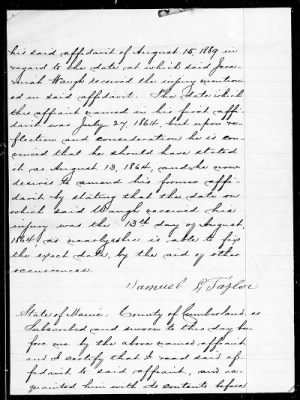 his said affidavit of August 15, 1889 in
regard to the date at which said Jere-
miah Waugh received the injury mention-
ed in said affidavit. The date which
this affiant named in his first affi-
davit was July 27 1864, but upon re-
flection and consideration he is con-
vinced that he should have stated
it as August 13, 1864, and he now
desires to amend his former affi-
davit by stating that the date on
which said Waugh received his
injury was the 13th day of August,
1864 as nearly as he is able to fix
the exact date, by the aid of other
occurrences.
Samuel Taylor
State of Maine, County of Cumberland, ss
Subscribed and sworn to this day be-
fore me by the above named affiant
and I certify that I read said af-
fidavit to said affiant, and ac-
quainted him with its contents before